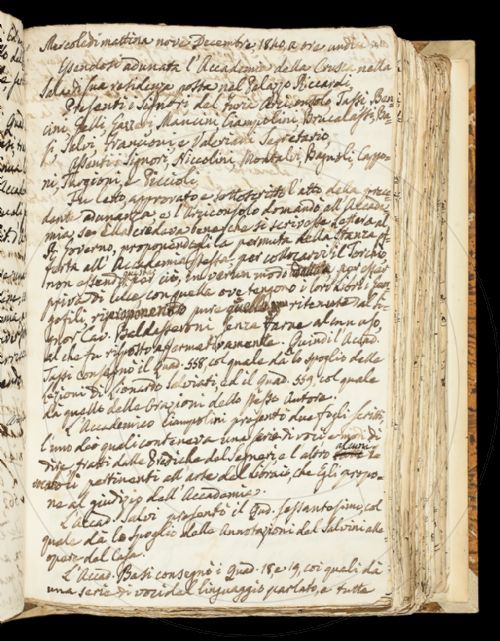 Mercoledì mattina nove Decembre, 1840, a ore undici
Essendosi adunata l'Accademia della Crusca nella
Sala di sua residenza posta nel Palazzo Riccardi,
Presenti i Signori del Furia Arciconsolo, Tassi, Ben-
cini, Gelli, Gazzeri, Mancini, Ciampolini, Brucalassi, Ba-
si, Salvi, Franzoni, e Valeriani Segretario,
Assenti i Signori, Niccolini, Montalvi, Bagnoli, Cappo-
ni, Targioni, e Piccioli.
Fu letto, approvato e sottoscritto l'atto della prece-
dente adunanza; e l'Arciconsolo domandò all'Accade-
mia, se Ella credeva bene che si scrivesse lettera al
R. Governo, proponendogli la permuta della Stanza of-
ferta all'Accademia stessa, per collocarvi il Torchio
non essendo per ciò, in verun modo per esser
priva di luce, con quella ove tengono i loro libri i Geor-
gofili, pure ritenuta dal Si-
gnor Cav. Baldasseroni senza farne alcun uso,
al che fu risposto affermativamente. Quindi l'Accad.
Tassi consegnò il Quad. 558, col quale dà lo spoglio delle
lezioni di Lionardo Salviati, ed il Quad. 559, col quale
dà quello delle Orazioni dello stesso Autore.
L'Accademico Ciampolini presentò due fogli scritti,
l'uno dei quali conteneva una serie di voci e modi di
dire, tratti dalle Prediche del Segneri e l'altro alcuni
vocaboli pertinenti all'arte del Libraio, che Egli propo-
ne al giudizio dell'Accademia.
L'Accad. Salvi presentò il Qud. sessantesimo, col
quale dà lo spoglio delle Annotazioni del Salvini alle
opere del Casa.
L'Accad. Basi consegnò i Quad. 18 e 19, coi quali dà
una serie di voci del linguaggio parlato, e tutte